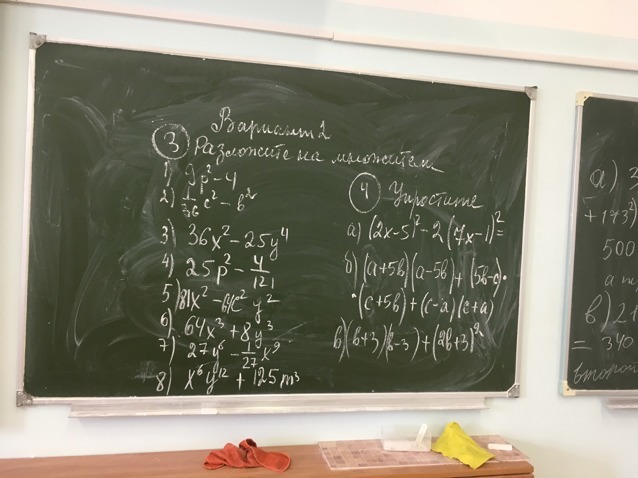 Вариант 2
③ Разложите на множители
1) 9p² - 4
2) 1/36 c² - b²
3) 36x² - 25y⁴
4) 25p² - 4/121
5) 81x² - 64c²y²
6) 64x³ + 8y³
7) 27y⁶ - 1/27 x⁹
8) x⁶y¹² + 125m³
④ Упростите
а) (2x-5)² - 2(7x-1)² =
б) (a+5b)(a-5b) + (5b-c)·
·(c+5b) + (c-a)(c+a)
в) (b+3)(b-3) + (2b+3)²
а)
500
в) 2+
= 340
второй